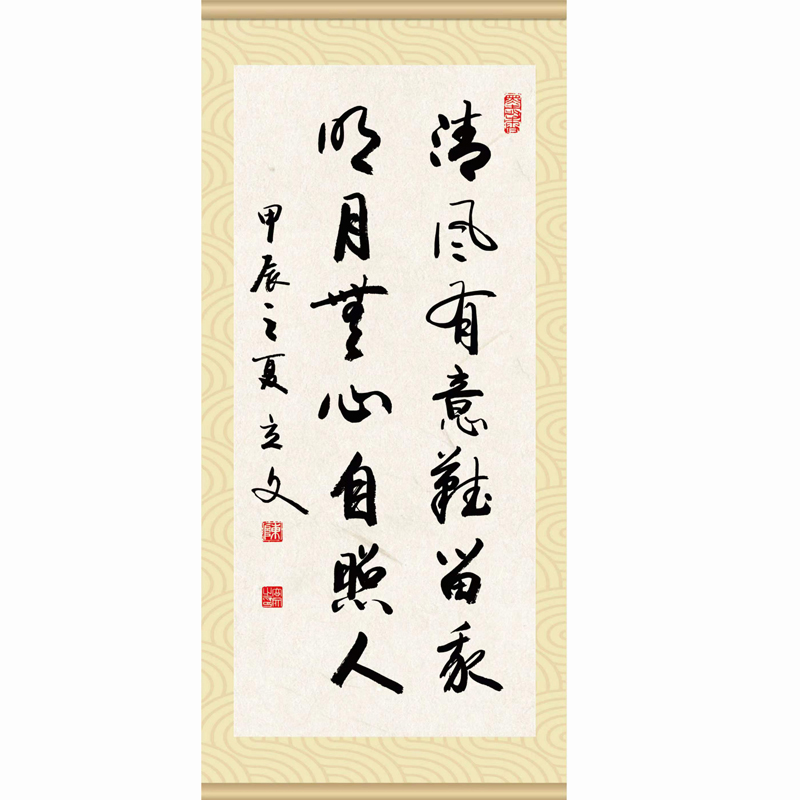 清风有意難留我
明月無心自照人
甲辰之夏 立文
陳